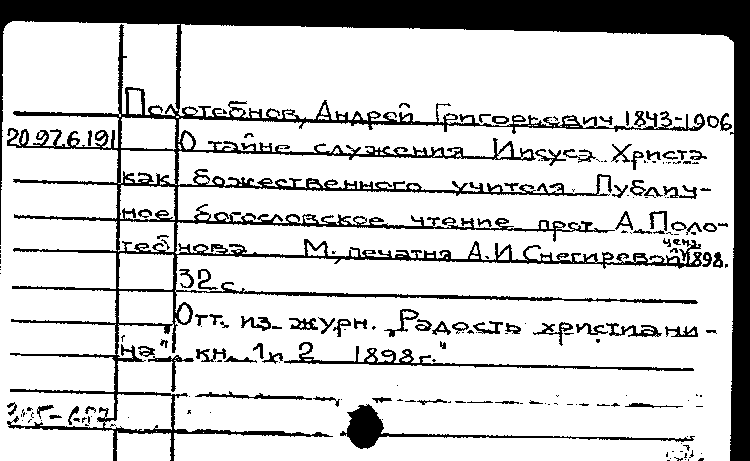 Полотебнов, Андрей Григорьевич, 1843-1906
20.97.6.191 О тайне служения Иисуса Христа
как божественного учителя. Публич-
ное богословское чтение прот. А. Поло-
ценз.
тебнова. М., печатня А.И Снегиревой, 1898.
32 с.
Отт. из журн. „Радость христиани-
на" кн. 1 и 2 1898 г."